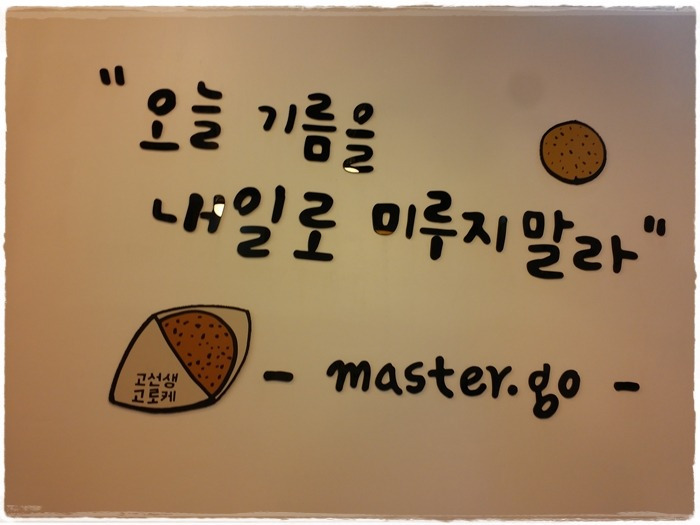 "오늘 기름을
내일로 미루지말라"
고선생
고로케
- master.go -